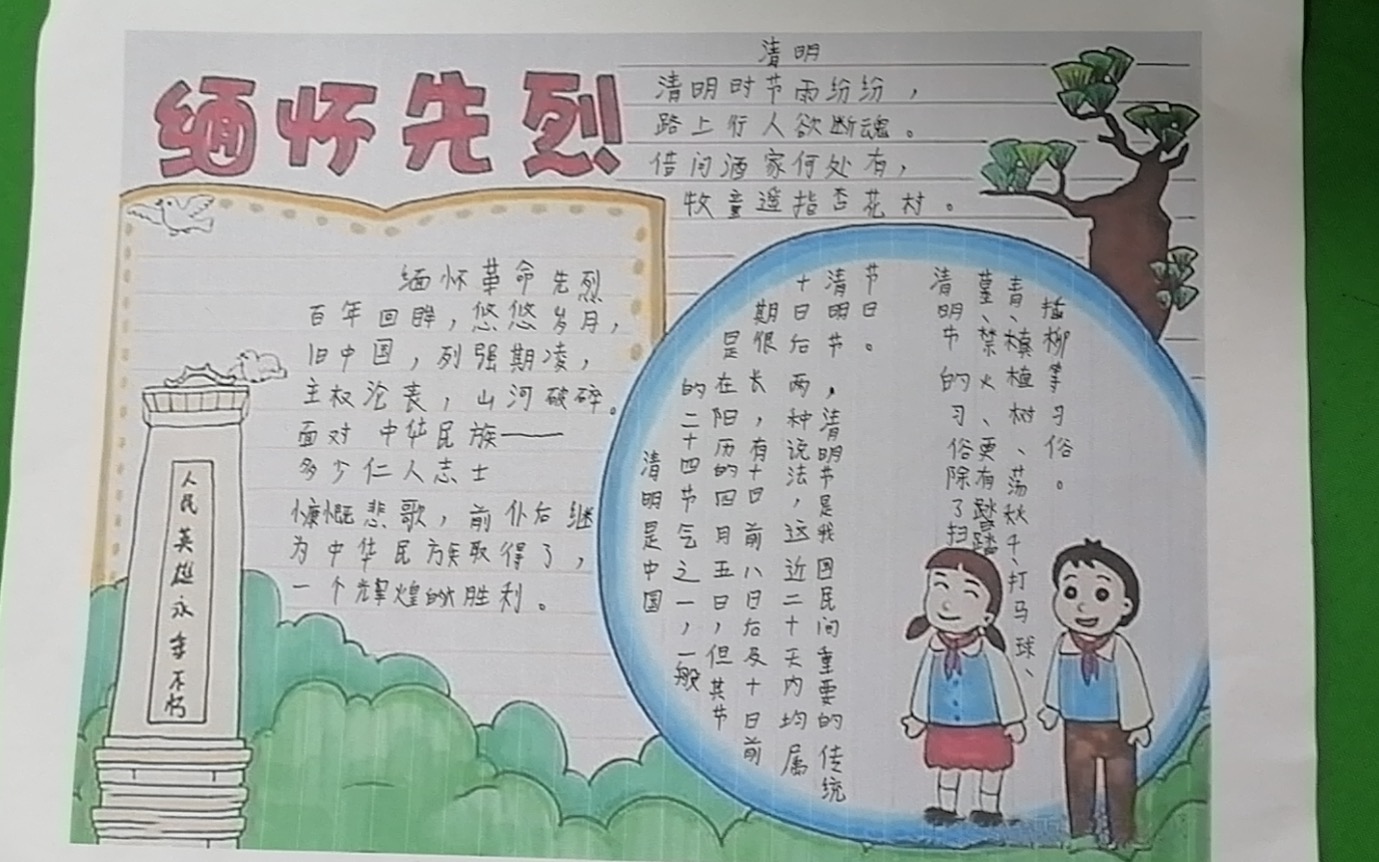 缅怀先烈
清明
清明时节雨纷纷，
路上行人欲断魂。
借问酒家何处有，
牧童遥指杏花村。
缅怀革命先烈
百年回眸，悠悠岁月，
旧中国，列强期凌，
主权沦丧，山河破碎。
面对 中华民族——
多少仁人志士
慷慨悲歌，前仆后继
为中华民族取得了，
一个辉煌的胜利。
人民英雄永垂不朽
清明节是中国
的二十四节气之一，一般
是在阳历的四月五日，但其节
期很长，有十日前八日后及十日前
十日后两种说法，这近二十天内均属
清明节，清明节是我国民间重要的传统
节日。
清明节的习俗除了扫
墓、禁火、更有踏踏
青、植植树、荡秋千、打马球、
插柳等习俗。